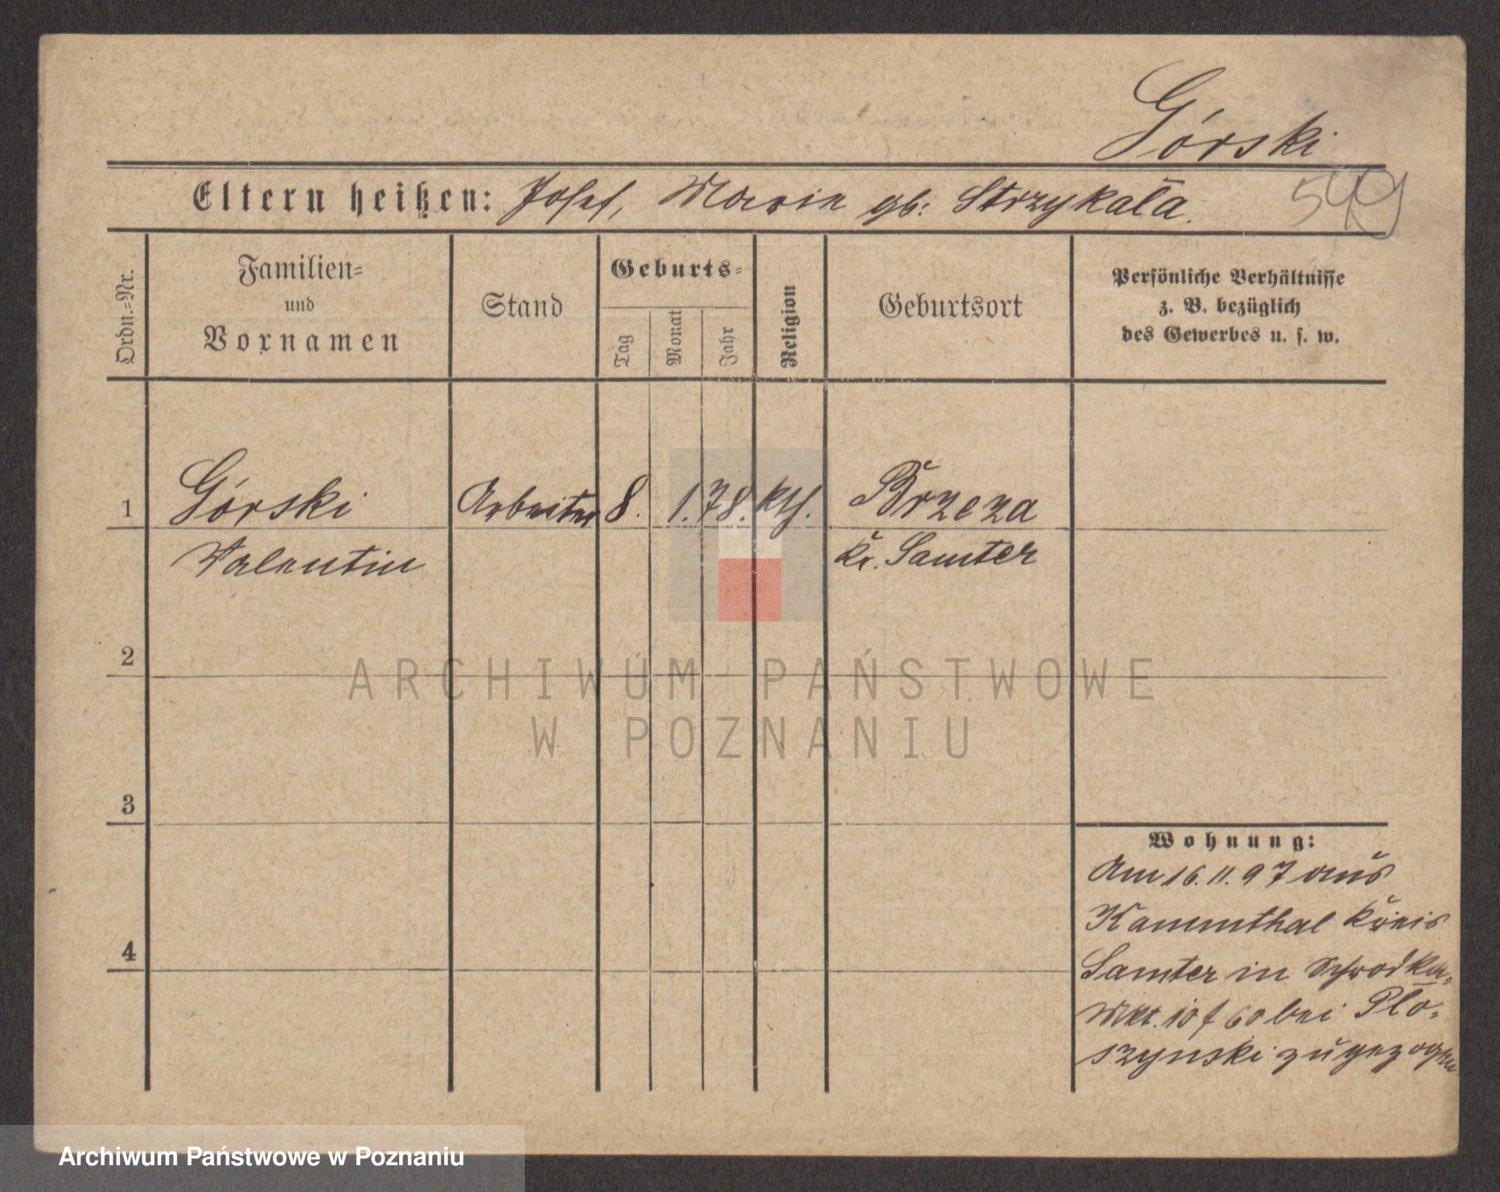 Górski
Eltern heißen: Josef, Marie gb: Strzykała.
549
Ordn.=Nr.
Familien=
und
Vornamen
Stand
Geburts=
Tag
Monat
Jahr
Religion
Geburtsort
Persönliche Verhältnisse
z. B. bezüglich
des Gewerbes u. s. w.
1 Górski Arbeiter 8. 1. 78. kth. Brzeza
Valentin Kr. Samter
2
ARCHIWUM PAŃSTWOWE
W POZNANIU
3
Wohnung:
Am 16.11.97 aus
Kammthal Kreis
4
Samter in Schrodka=
Mkt. 10 f 60 bei Plo=
szynski zugezogen
Archiwum Państwowe w Poznaniu